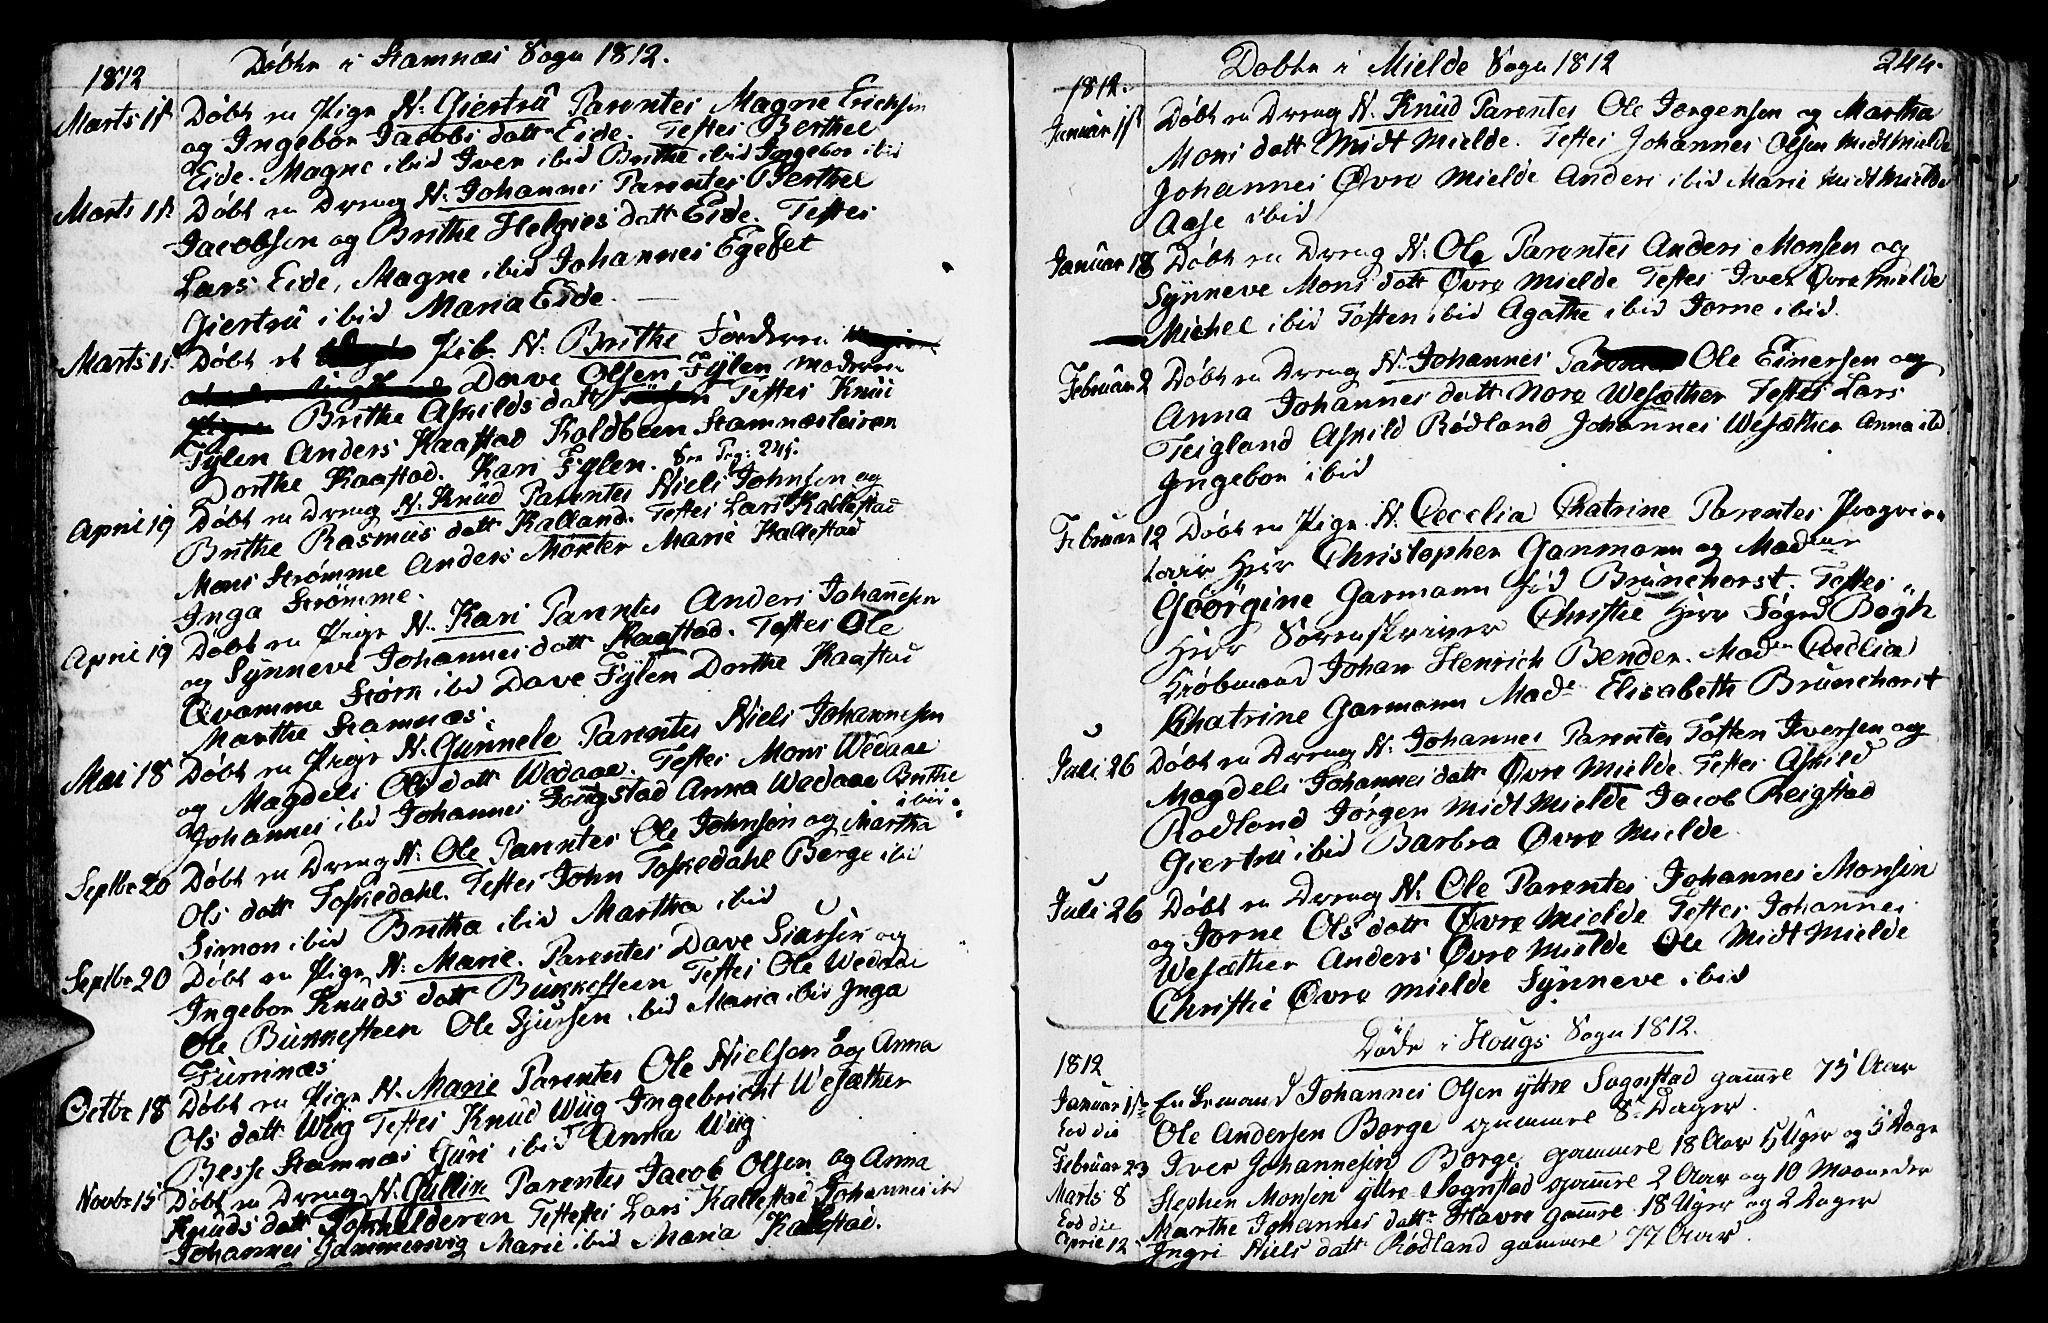 Döbte i Stamnæs Sogn 1812.
1812
Marts 1st Döbt en Pige N: Giertrü Parentes Magne Erichsen
og Ingebor Jacobs datt Eide. Testes Berthel
Eide. Magne ibid Iver ibid Brithe ibid Ingebor ibid
Marts 1st Döbt en Dreng N: Johannes Parentes Berthel
Jacobsen og Brithe Helgies datt Eide. Testes
Lars Eide, Magne ibid Johannes Egeset
Giertrü ibid Maria Eide.
Marts 1st Döbt et Pib. N: Brithe Faderen
Dave Olsen Fylen moderen
Brithe Askilds datt Testes Knüt
Fylen Anders Kaastad Koldbeen Stamnæsleiren
Dorthe Kaastad. Kari Fylen. See Pag: 245.
April 19 Döbt en Dreng N: Knüd Parentes Niels Johnsen og
Brithe Rasmus datt Kalland. Testes Lars Kallestad
Mons Strömme Anders Mönter Marie Kallestad
Inga Strömme.
April 19 Döbt en Pige N: Kari Parentes Anders Johannesen
og Synneve Johannes datt Kaastad. Testes Ole
Qvamme Störn ibid Dave Fylen Dorthe Kaastad
Marthe Stamnæs.
Mai 18 Döbt en Pige N: Günnele Parentes Niels Johannesen
og Magdeli Ols datt Wedaae. Testes Mons Wedaae
Johannes ibid Johannes Fougstad Anna Wedaae Brithe
ibid.
Septbr 20 Döbt en Dreng N: Ole Parentes Ole Johnsen og Martha
Ols datt Toskedahl. Testes John Toskedahl Berge ibid
Simon ibid Britha ibid Martha ibid
Septbr 20 Döbt en Pige N: Marie. Parentes Dave Siursen og
Ingebor Knuds datt Bünkesteen Testes Ole Wedaae
Ole Bünnesteen Ole Sjursen ibid Maria ibid Inga
Furrnæs
Octbr 18 Döbt en Pige N: Marie Parentes Ole Nielsen og Anna
Ols datt Wüg Testes Knüd Wüg Ingebricht Wesæther
Besse Stamnæs Güri ibid Anna Wüg
Novbr 15 Döbt en Dreng N: Güllik Parentes Jacob Olsen og Anna
Knuds datt Testes Lars Kallestad Johannes ibd
Johannes Gammersvig Marie ibid Maria Kallestad.
Döbte i Mielde Sogn 1812
244.
1812.
Januar 1st Döbt en Dreng N: Knüd Parentes Ole Jorgensen og Martha
Mons datt Midt Mielde. Testes Johannes Olsen Midt Mielde
Johannes Övre Mielde Anders ibid Marie Midt Mielde
Aase ibid
Januar 18 Döbt en Dreng N: Ole Parentes Anders Monsen og
Synneve Mons datt Övre Mielde Testes Iver Övre Mielde
Michel ibid Tosten ibid Agathe ibid Jorne ibid.
Februar 2 Döbt en Dreng N: Johannes Ole Einersen og
Anna Johannes datt Nore Wesæther Testes Lars
Teigland Askild Rödland Johannes Wesæther Anna ibd
Ingebor ibid
Februar 12 Döbt en Pige N: Cecelia Chatrine Parentes Progvire
Herr Christopher Garmann og Madme
Geörgine Garmann föd Brünchorst. Testes
Herr Sorenskriver Christie Herr Foged Bogh
Kiöbmand Johan Henrich Bender. Madme Cecilia
Chatrine Garmann Made Elisabeth Brünchorst
Juli 26 Döbt en Dreng N: Johannes Parentes Tosten Iversen og
Magdeli Johannes datt Övre Mielde. Testes Askild
Rodland Jörgen Midt Mielde Jacob Reigstad
Giertrü ibid Barbra Övre Mielde
Juli 26 Döbt en Dreng N: Ole Parentes Johannes Monsen
og Jorne Ols datt Övre Mielde Testes Johannes
Wesæther Anders Övre Mielde Ole Midt Mielde
Christie Övre Mielde Synneve ibid
Döde i Hougs Sogn 1812.
1812
Januar 1st Enkemand Johannes Olsen yttre Sognstad gamre 75 Aar
Eod die Ole Andersen Borge gammre 8te Dager.
Februar 23 Iver Johannesen Borge gammre 18 Aar 5 Uger og 5 Dage
Marts 8 Stephen Monsen yttre Sognstad gamre 2 Aar og 10 Maaneder
Eod die Marthe Johannes datt Havre gamre 18 Uger og 2 Dager
Aprie 12 Ingri Niels datt Rödland gammre 77 Aar.